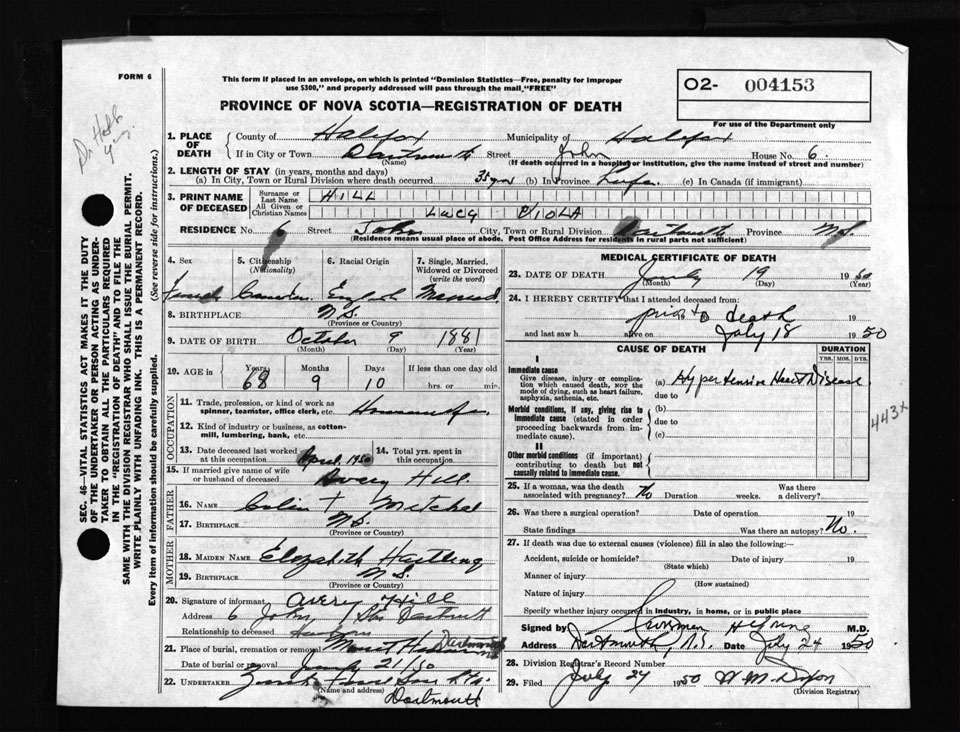 FORM 6
This form if placed in an envelope, on which is printed "Dominion Statistics—Free, penalty for improper
use $300," and properly addressed will pass through the mail "FREE"
PROVINCE OF NOVA SCOTIA—REGISTRATION OF DEATH
O2- 004153
For use of the Department only
1. PLACE OF DEATH { County of Halifax Municipality of Halifax
If in City or Town Dartmouth Street John House No. 6
(Name) (If death occurred in a hospital or institution, give the name instead of street and number)
2. LENGTH OF STAY (in years, months and days)
(a) In City, Town or Rural Division where death occurred 35 yrs (b) In Province Life (c) In Canada (if immigrant)
3. PRINT NAME OF DECEASED { Surname or Last Name HILL
All Given or Christian Names LUCY VIOLA
RESIDENCE No. 6 Street John City, Town or Rural Division Dartmouth Province N.S.
(Residence means usual place of abode. Post Office Address for residents in rural parts not sufficient)
4. Sex 5. Citizenship (Nationality) 6. Racial Origin 7. Single, Married, Widowed or Divorced (write the word)
Female Canadian English Married
8. BIRTHPLACE N.S.
(Province or Country)
9. DATE OF BIRTH October 9 1881
(Month) (Day) (Year)
10. AGE in { Years Months Days If less than one day old
68 9 10 hrs. or min.
OCCUPATION
11. Trade, profession, or kind of work as spinner, teamster, office clerk, etc. Housewife
12. Kind of industry or business, as cotton-mill, lumbering, bank, etc.
13. Date deceased last worked at this occupation April, 1950 14. Total yrs. spent in this occupation
15. If married give name of wife or husband of deceased Avery Hill
FATHER
16. Name Colin F Mitchel
17. Birthplace N.S.
MOTHER
18. Maiden Name Elizabeth Hartling
19. Birthplace N.S.
(Province or Country)
20. Signature of informant Avery Hill
Address 6 John St Dartmouth
Relationship to deceased
21. Place of burial, cremation or removal Dartmouth
Date of burial or removal July 21/50
22. UNDERTAKER
(Name and address)
Dartmouth
MEDICAL CERTIFICATE OF DEATH
23. DATE OF DEATH July 19 1950
(Month) (Day) (Year)
24. I HEREBY CERTIFY that I attended deceased from:
prior to death
19
and last saw h alive on July 18 1950
CAUSE OF DEATH DURATION
YRS. MOS. DYS.
I
Immediate cause
Give disease, injury or complication which caused death, not the mode of dying, such as heart failure, asphyxia, asthenia, etc.
(a) Hypertensive Heart Disease
due to
Morbid conditions, if any, giving rise to immediate cause (stated in order proceeding backwards from immediate cause).
(b)
due to
(c)
443X
II
Other morbid conditions (if important) contributing to death but not causally related to immediate cause.
25. If a woman, was the death associated with pregnancy? No Duration weeks. Was there a delivery?
26. Was there a surgical operation? Date of operation 19
State findings Was there an autopsy? No.
27. If death was due to external causes (violence) fill in also the following:—
Accident, suicide or homicide? Date of injury 19
(State which)
Manner of injury
(How sustained)
Nature of injury
Specify whether injury occurred in industry, in home, or in public place
Signed by M.D.
Address Dartmouth, N.S. Date July 24 1950
28. Division Registrar's Record Number
29. Filed July 24 1950 W M Dixon
(Division Registrar)
SEC. 46—VITAL STATISTICS ACT MAKES IT THE DUTY
OF THE UNDERTAKER OR PERSON ACTING AS UNDER-
TAKER TO OBTAIN ALL THE PARTICULARS REQUIRED
IN THE "REGISTRATION OF DEATH" AND TO FILE THE
SAME WITH THE DIVISION REGISTRAR WHO SHALL ISSUE THE BURIAL PERMIT.
WRITE PLAINLY WITH UNFADING INK. THIS IS A PERMANENT RECORD.
Every item of information should be carefully supplied. (See reverse side for instructions.)